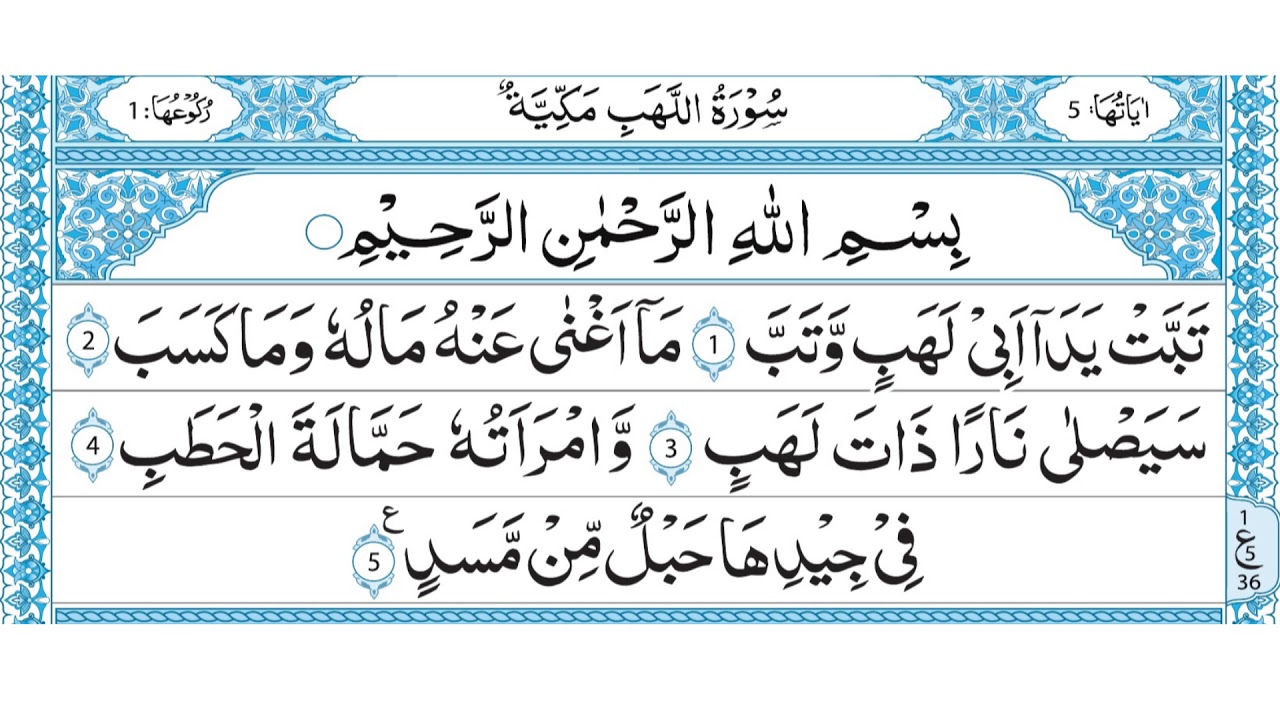 اٰيَاتُهَا: 5 سُوْرَةُ اللَّهَبِ مَكِّيَّةٌ رُكُوْعُهَا: 1
بِسْمِ اللهِ الرَّحْمٰنِ الرَّحِيْمِ
تَبَّتْ يَدَاۤ اَبِيْ لَهَبٍ وَّتَبَّ 1 مَاۤ اَغْنٰى عَنْهُ مَالُهٗ وَمَا كَسَبَ 2
سَيَصْلٰى نَارًا ذَاتَ لَهَبٍ 3 وَّامْرَاَتُهٗ حَمَّالَةَ الْحَطَبِ 4
فِيْ جِيْدِهَا حَبْلٌ مِّنْ مَّسَدٍ 5 ع
1
ع 5
36